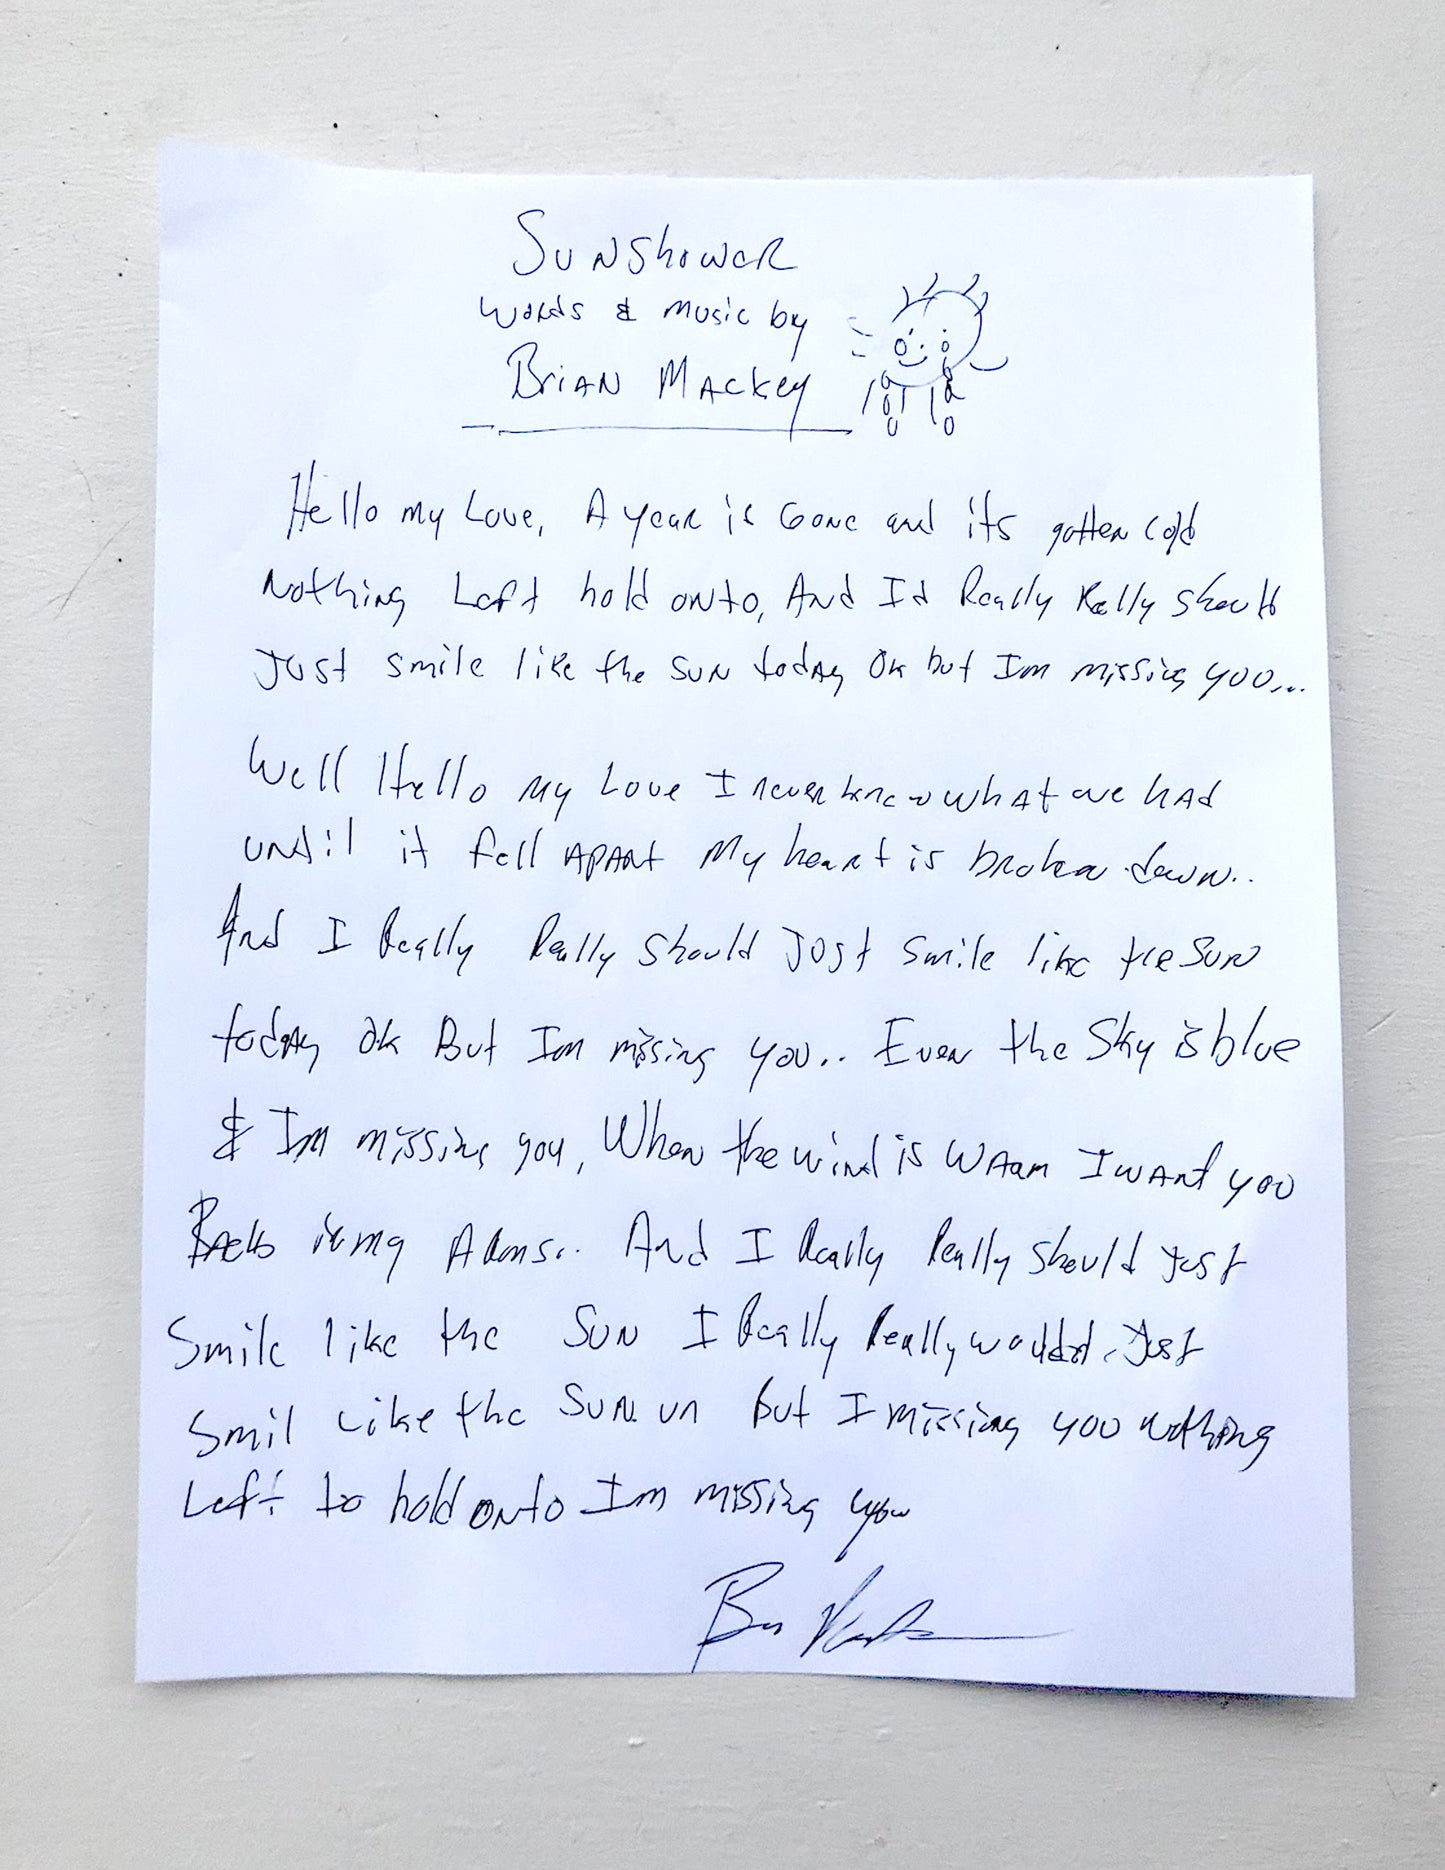 Sunshower
Words & Music by
Brian Mackey
Hello my Love, A year is Gone and its gotten cold
Nothing Left hold onto, And Id Really Relly should
Just smile like the sun today Ok but Im missing you...
Well Hello my Love I never knew what we had
until it fell APArt My heart is broken down..
And I Really Really should Just smile like the Sun
today ok But Im missing you.. Even the Sky is blue
& Im missing you, When the wind is Warm I want you
Back in my Arms.. And I Really Really should just
Smile like the Sun I Really Really would Just
Smil Like the Sun. un But I missing you nothing
Left to hold onto Im missing you